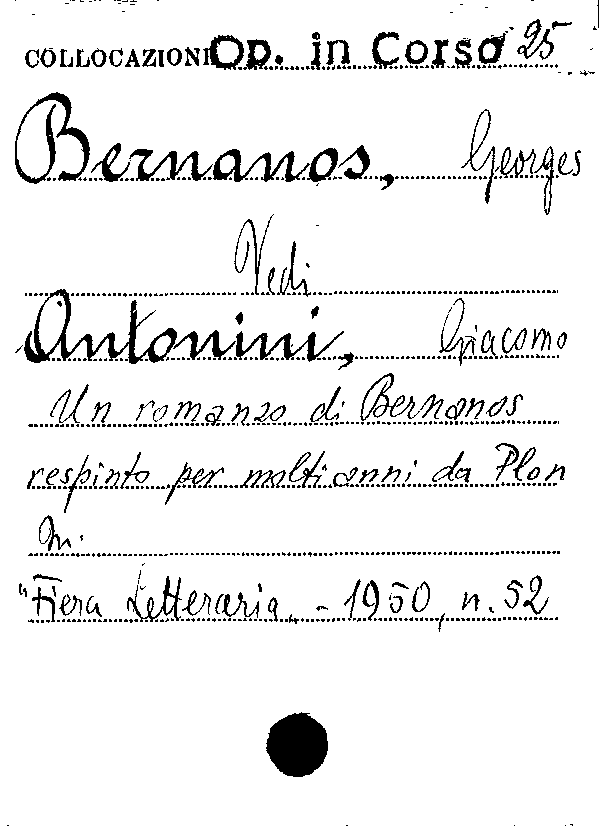 COLLOCAZIONE Op. in Corso 25
Bernanos, Georges
Vedi
Antonini, Giacomo
Un romanzo di Bernanos
respinto per molti anni da Plon
In:
"Fiera Letteraria" - 1950, n. 52